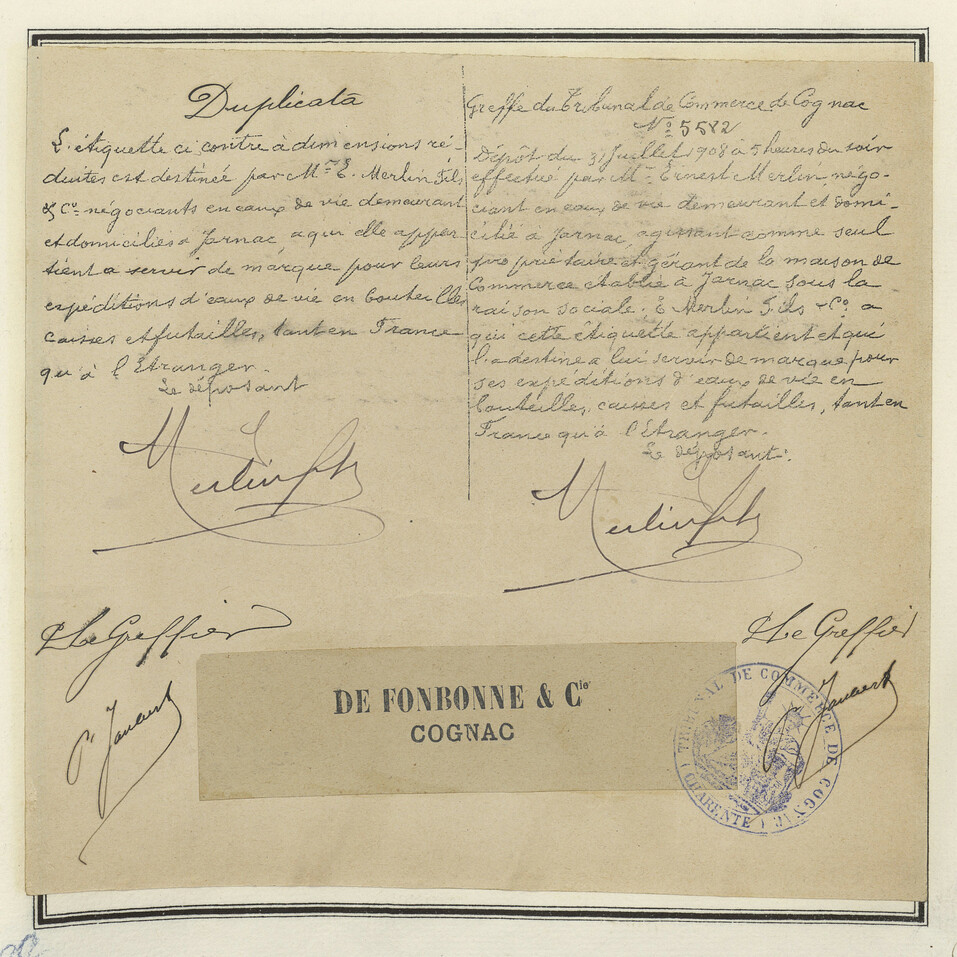 Duplicata
L'étiquette ci contre à dimensions ré-
duites est destinée par Mrs E. Merlin Fils
& Co négociants en eaux de vie demeurant
et domiciliés à Jarnac, a qui elle appar
tient a servir de marque pour leurs
expéditions d'eaux de vie en bouteilles
caisses et futailles, tant en France
qu'à l'Etranger.
Le déposant
Merlin fils
Le Greffier
Greffe du Tribunal de Commerce de Cognac
No 5582
Dépôt du 31 Juillet 1908 à 5 heures du soir
effectué par Mr Ernest Merlin, négo-
ciant en eaux de vie demeurant et domi-
cilié à Jarnac, agissant comme seul
propriétaire et gérant de la maison de
Commerce établie à Jarnac sous la
raison sociale. E Merlin Fils & Co. a
qui cette étiquette appartient et qui
l'a destine a lui servir de marque pour
ses expéditions d'eaux de vie en
bouteilles, caisses et futailles, tant en
France qu'à l'Etranger.
Le déposant.
Merlin fils
Le Greffier
DE FONBONNE & Cie
COGNAC
TRIBUNAL DE COMMERCE DE COGNAC
(CHARENTE)